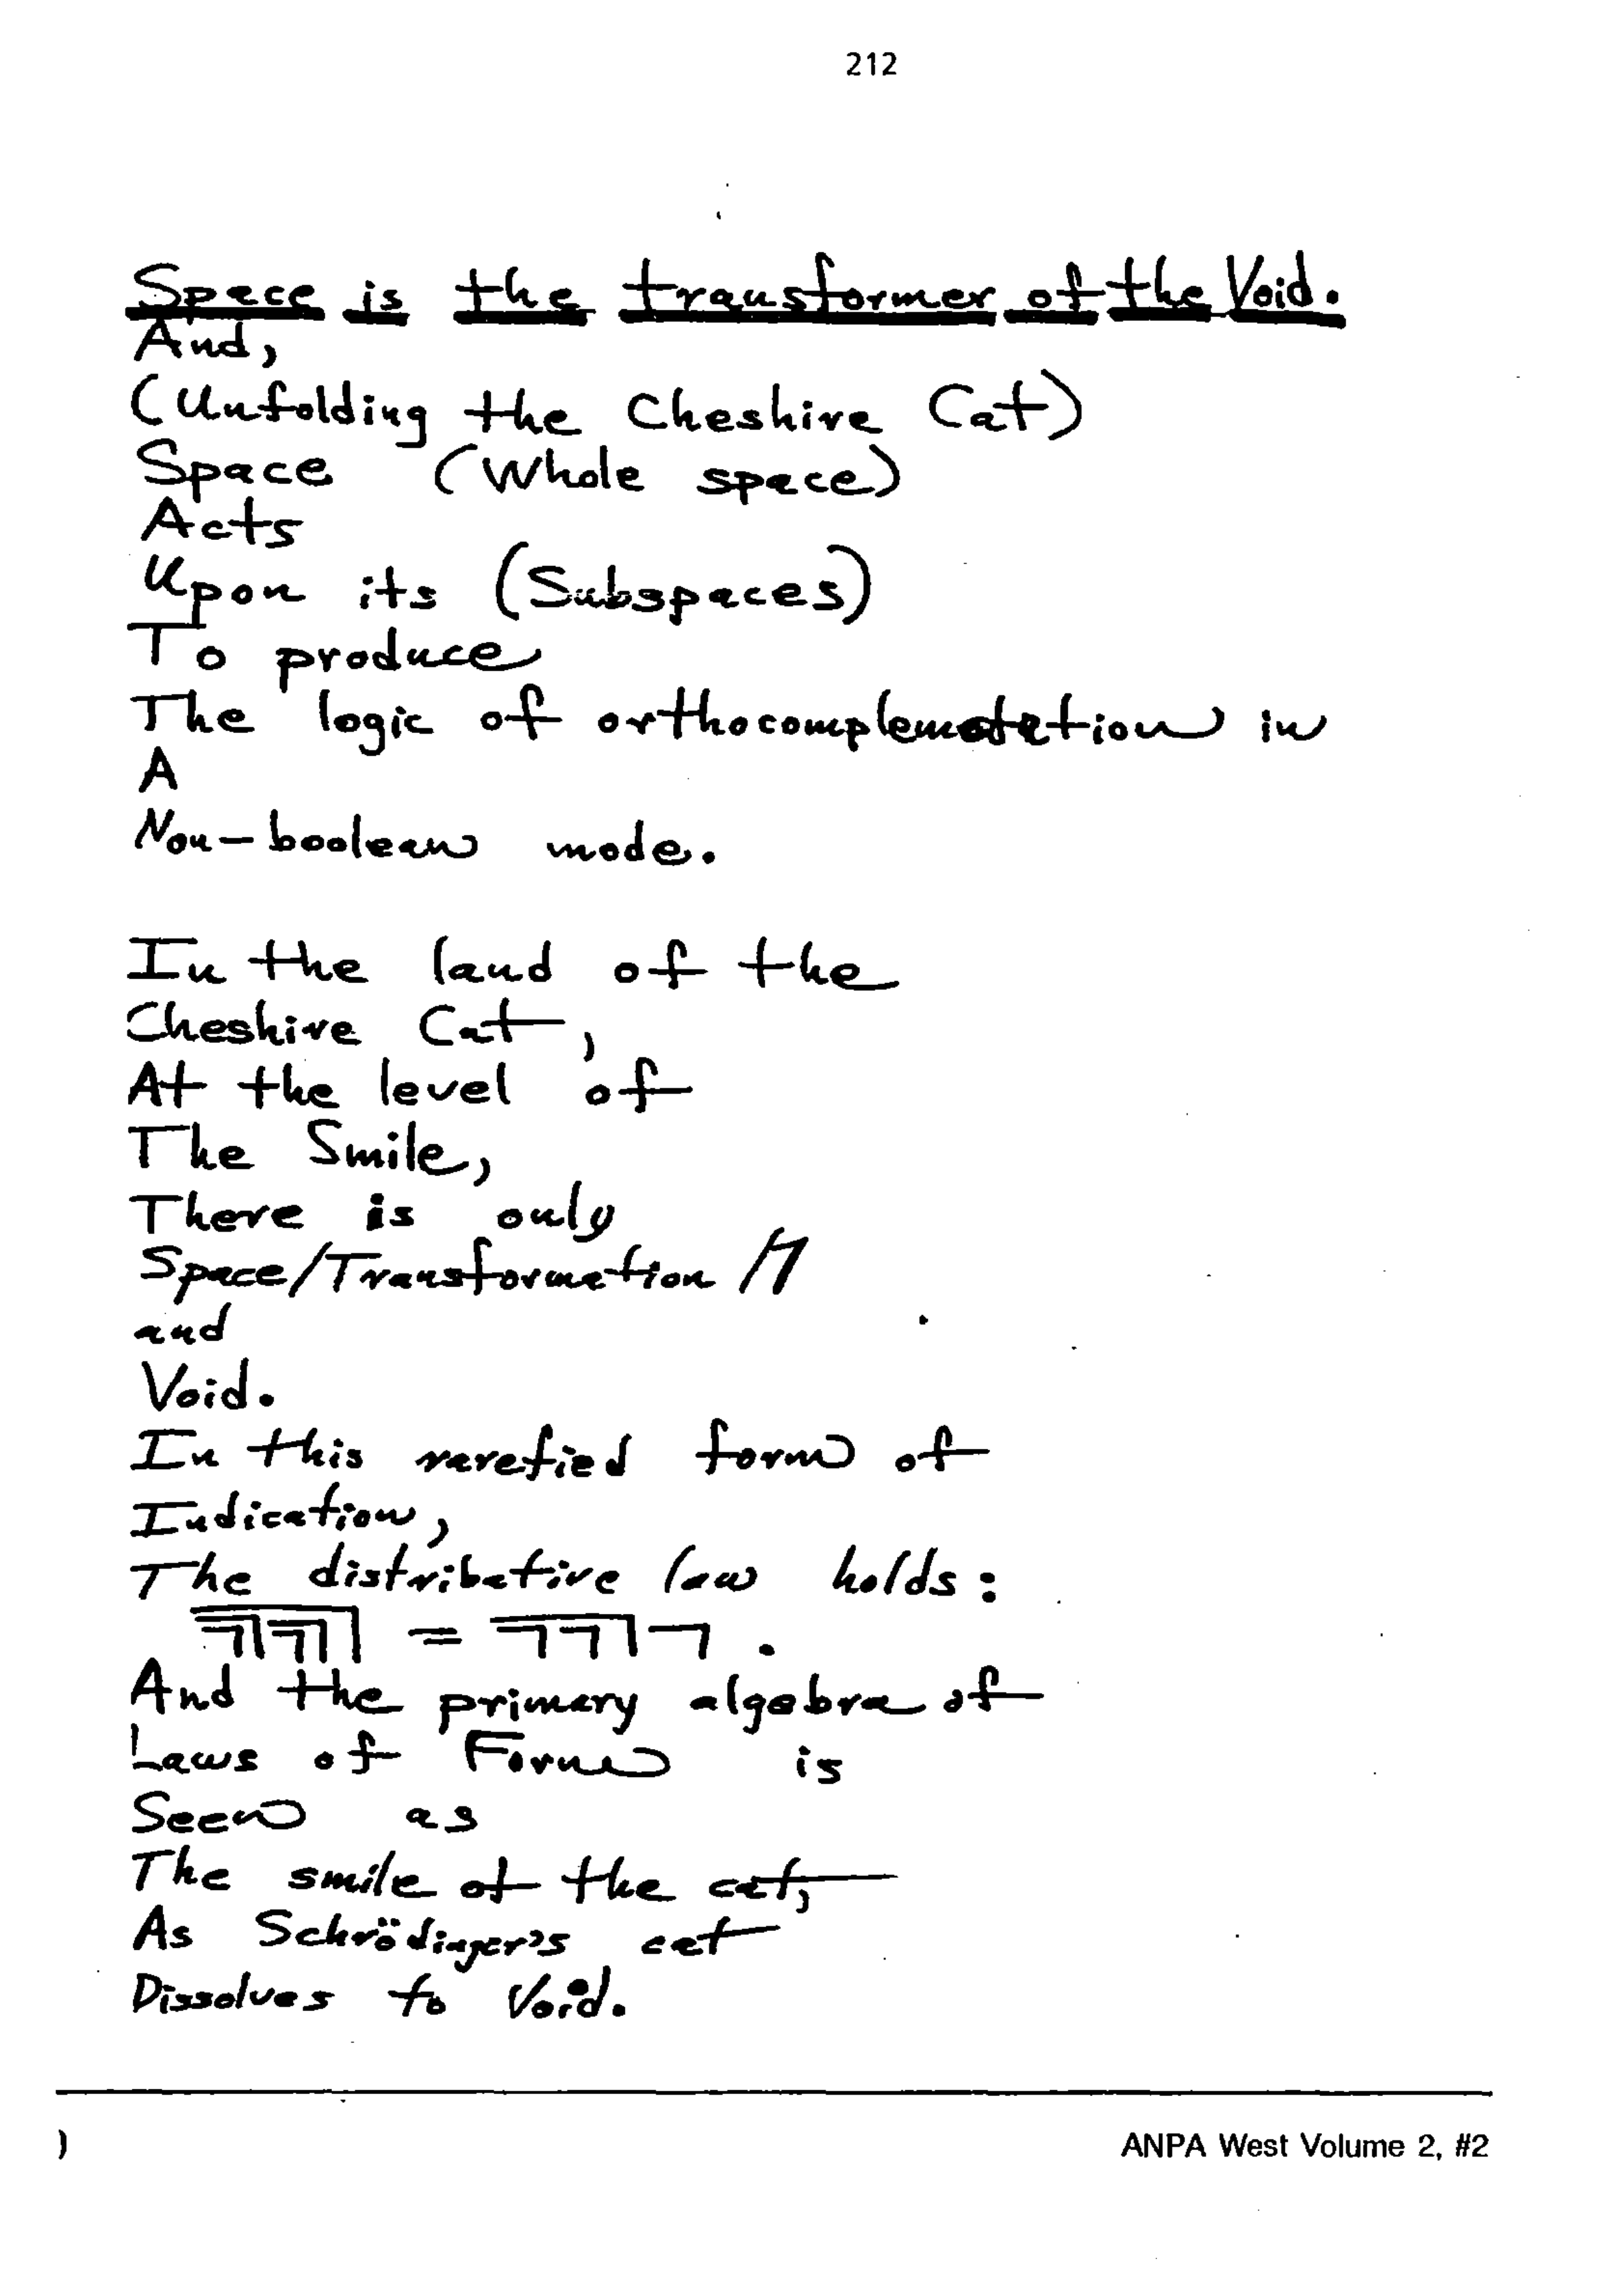 212
Space is the transformer of the Void.
And,
(Unfolding the Cheshire Cat)
Space (Whole space)
Acts
Upon its (Subspaces)
To produce
The logic of orthocomplemetation in
A
Non-boolean mode.
In the land of the
Cheshire Cat,
At the level of
The Smile,
There is only
Space/Transformation /⏋
and
Void.
In this rarefied form of
Indication,
The distributive law holds:
And the primary algebra of
Laws of Form is
Seen as
The smile of the cat,
As Schrödinger's cat
Dissolves to Void.
)
ANPA West Volume 2, #2